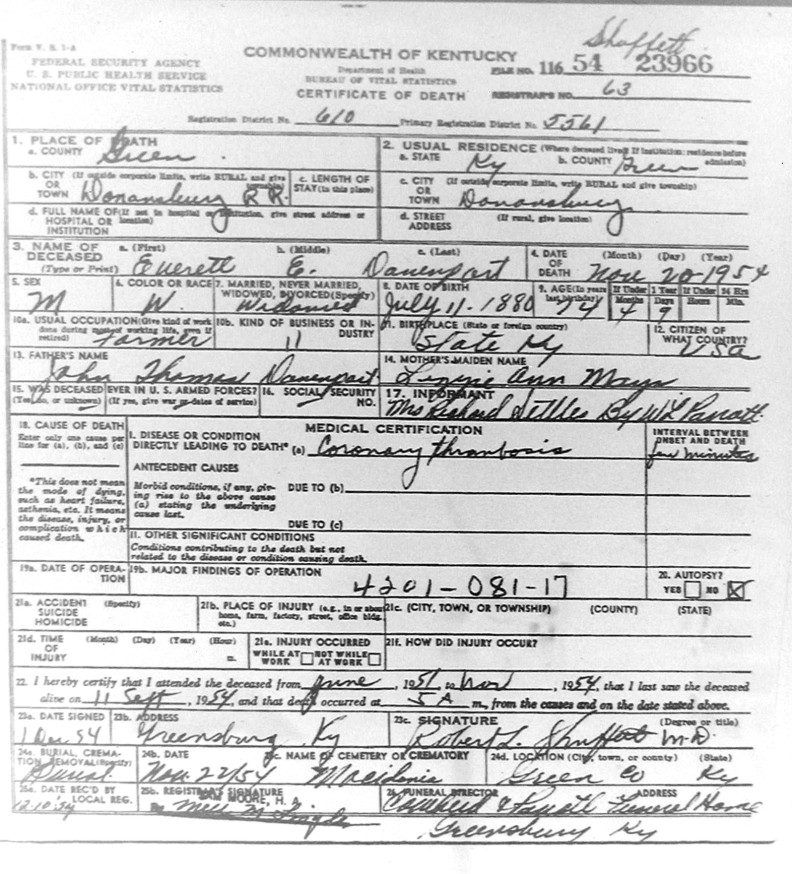 Shuffett
Form V. S. 1-A
FEDERAL SECURITY AGENCY
U. S. PUBLIC HEALTH SERVICE
NATIONAL OFFICE VITAL STATISTICS
COMMONWEALTH OF KENTUCKY
Department of Health
BUREAU OF VITAL STATISTICS
CERTIFICATE OF DEATH
FILE NO. 116 54 23966
REGISTRAR'S NO. 63
Registration District No. 610 Primary Registration District No. 5561
1. PLACE OF DEATH
a. COUNTY Green
2. USUAL RESIDENCE (Where deceased lived. If institution: residence before admission)
a. STATE Ky b. COUNTY Green
b. CITY (If outside corporate limits, write RURAL and give township)
OR
TOWN Donansburg R R.
c. LENGTH OF
STAY (in this place)
c. CITY (If outside corporate limits, write RURAL and give township)
OR
TOWN Donansburg
d. FULL NAME OF (If not in hospital or institution, give street address or
HOSPITAL OR location)
INSTITUTION
d. STREET (If rural, give location)
ADDRESS
3. NAME OF a. (First) b. (Middle) c. (Last)
DECEASED
(Type or Print) Everett E. Davenport
4. DATE (Month) (Day) (Year)
OF
DEATH Nov 20-1954
5. SEX
M
6. COLOR OR RACE
W
7. MARRIED, NEVER MARRIED,
WIDOWED, DIVORCED (Specify)
Widowed
8. DATE OF BIRTH
July 11. 1880
9. AGE (In years If Under 1 Year If Under 24 Hrs
last birthday) Months Days Hours Min.
74 4 9
10a. USUAL OCCUPATION (Give kind of work
done during most of working life, even if
retired) Farmer
10b. KIND OF BUSINESS OR IN-
DUSTRY
11
11. BIRTHPLACE (State or foreign country)
State Ky
12. CITIZEN OF
WHAT COUNTRY?
USA
13. FATHER'S NAME
John Thomas Davenport
14. MOTHER'S MAIDEN NAME
Lizzie Ann Mays
15. WAS DECEASED EVER IN U. S. ARMED FORCES?
(Yes, no, or unknown) (If yes, give war or dates of service)
16. SOCIAL SECURITY
NO.
17. INFORMANT
Mrs Richard Settles By W L Parrott
18. CAUSE OF DEATH
Enter only one cause per
line for (a), (b), and (c)
*This does not mean
the mode of dying,
such as heart failure,
asthenia, etc. It means
the disease, injury, or
complication which
caused death.
MEDICAL CERTIFICATION
I. DISEASE OR CONDITION
DIRECTLY LEADING TO DEATH* (a) Coronary thrombosis
INTERVAL BETWEEN
ONSET AND DEATH
few minutes
ANTECEDENT CAUSES
Morbid conditions, if any, giv-
ing rise to the above cause
(a) stating the underlying
cause last.
DUE TO (b)
DUE TO (c)
II. OTHER SIGNIFICANT CONDITIONS
Conditions contributing to the death but not
related to the disease or condition causing death.
19a. DATE OF OPERA-
TION
19b. MAJOR FINDINGS OF OPERATION
4201-081-17
20. AUTOPSY?
YES NO
21a. ACCIDENT (Specify)
SUICIDE
HOMICIDE
21b. PLACE OF INJURY (e.g., in or about
home, farm, factory, street, office bldg.
etc.)
21c. (CITY, TOWN, OR TOWNSHIP) (COUNTY) (STATE)
21d. TIME (Month) (Day) (Year) (Hour)
OF
INJURY m.
21e. INJURY OCCURRED
WHILE AT NOT WHILE
WORK AT WORK
21f. HOW DID INJURY OCCUR?
22. I hereby certify that I attended the deceased from June, 1951, to Nov, 1954, that I last saw the deceased
alive on 11 Sept, 1954, and that death occurred at 5 A m., from the causes and on the date stated above.
23a. DATE SIGNED
1 Dec 54
23b. ADDRESS
Greensburg Ky
23c. SIGNATURE (Degree or title)
Robert L. Shuffett M.D.
24a. BURIAL, CREMA-
TION REMOVAL (Specify)
Burial
24b. DATE
Nov. 22/54
24c. NAME OF CEMETERY OR CREMATORY
Macedonia
24d. LOCATION (City, town, or county) (State)
Green Co Ky
25a. DATE REC'D BY
LOCAL REG.
12-10-54
25b. REGISTRAR'S SIGNATURE
MOORE, H.
FUNERAL DIRECTOR ADDRESS
Cowherd & Parrott Funeral Home
Greensburg Ky